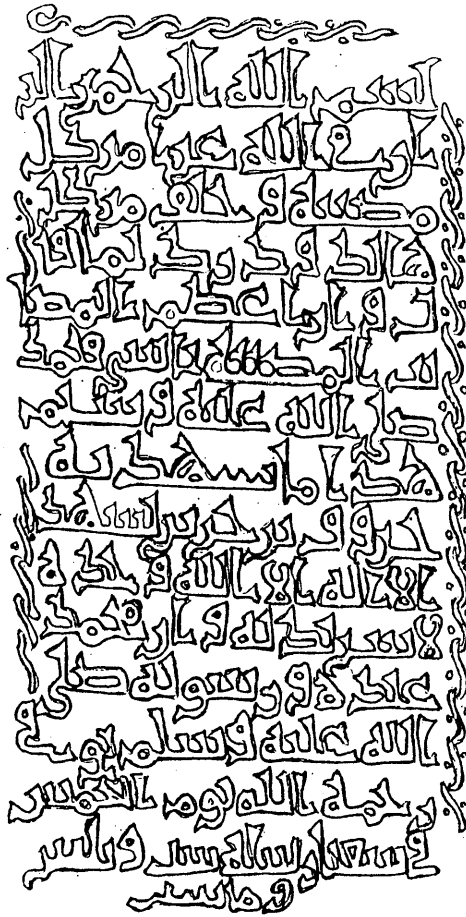 بسم الله الرحمن الر
ان في الله عزا من كل
مصيبة وخلف من كل
هالك ودرك لما فا
ت وان اعظم المصا
ئب المصيبة بالنبي محمد
صلى الله عليه وسلم
هذا ما تشهد به
بن تشهد
الا اله الا الله وحده
لا شريك له وان محمد
عبده ورسوله صلى
الله عليه وسلم توفي
رحمة الله يوم الخميس
في شعبان سنة ست وثلثين
ومائتين